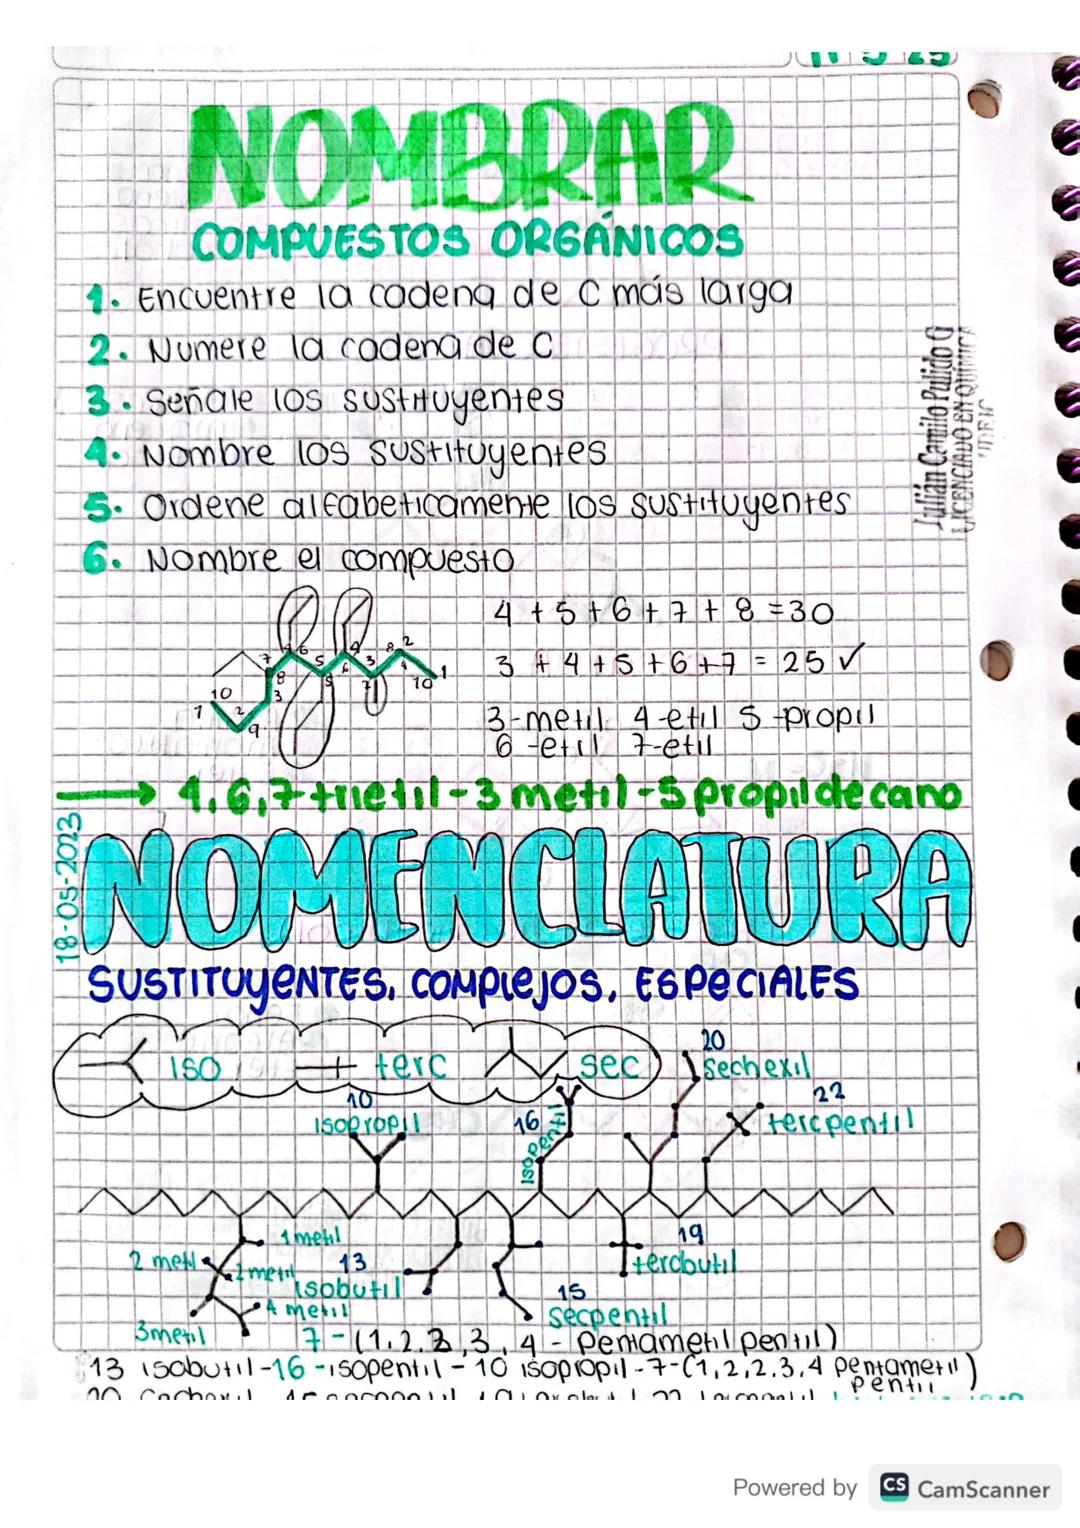 NOMBRAR
COMPUESTOS ORGÁNICOS
1. Encuentre la cadena de C más larga
2. Numere la cadena de C
3. Señale los sustituyentes
4. Nombre los sustituyentes
5. Ordene alfabeticamente los sustituyentes
6. Nombre el compuesto
Julián Camilo Pulido G
LICENCIADO EN QUÍMICA
4 + 5 + 6 + 7 + 8 = 30
3 + 4 + 5 + 6 + 7 = 25 ✓
3-metil 4-etil 5-propil
6-etil 7-etil
→ 4,6,7-trietil-3 metil-5 propildecano
18-05-2023
NOMENCLATURA
SUSTITUYENTES, COMPLEJOS, ESPECIALES
ISO terc sec
20
sechexil
10
isopropil
16
isopentil
22
tercpentil
1 metil
2 metil
2 metil
13
isobutil
19
tercbutil
4 metil
15
secpentil
3metil
7-(1,2,2,3,4-Pentametil pentil)
13 isobutil-16-isopentil-10 isopropil-7-(1,2,2,3,4 pentametil pentil)
Powered by CS CamScanner